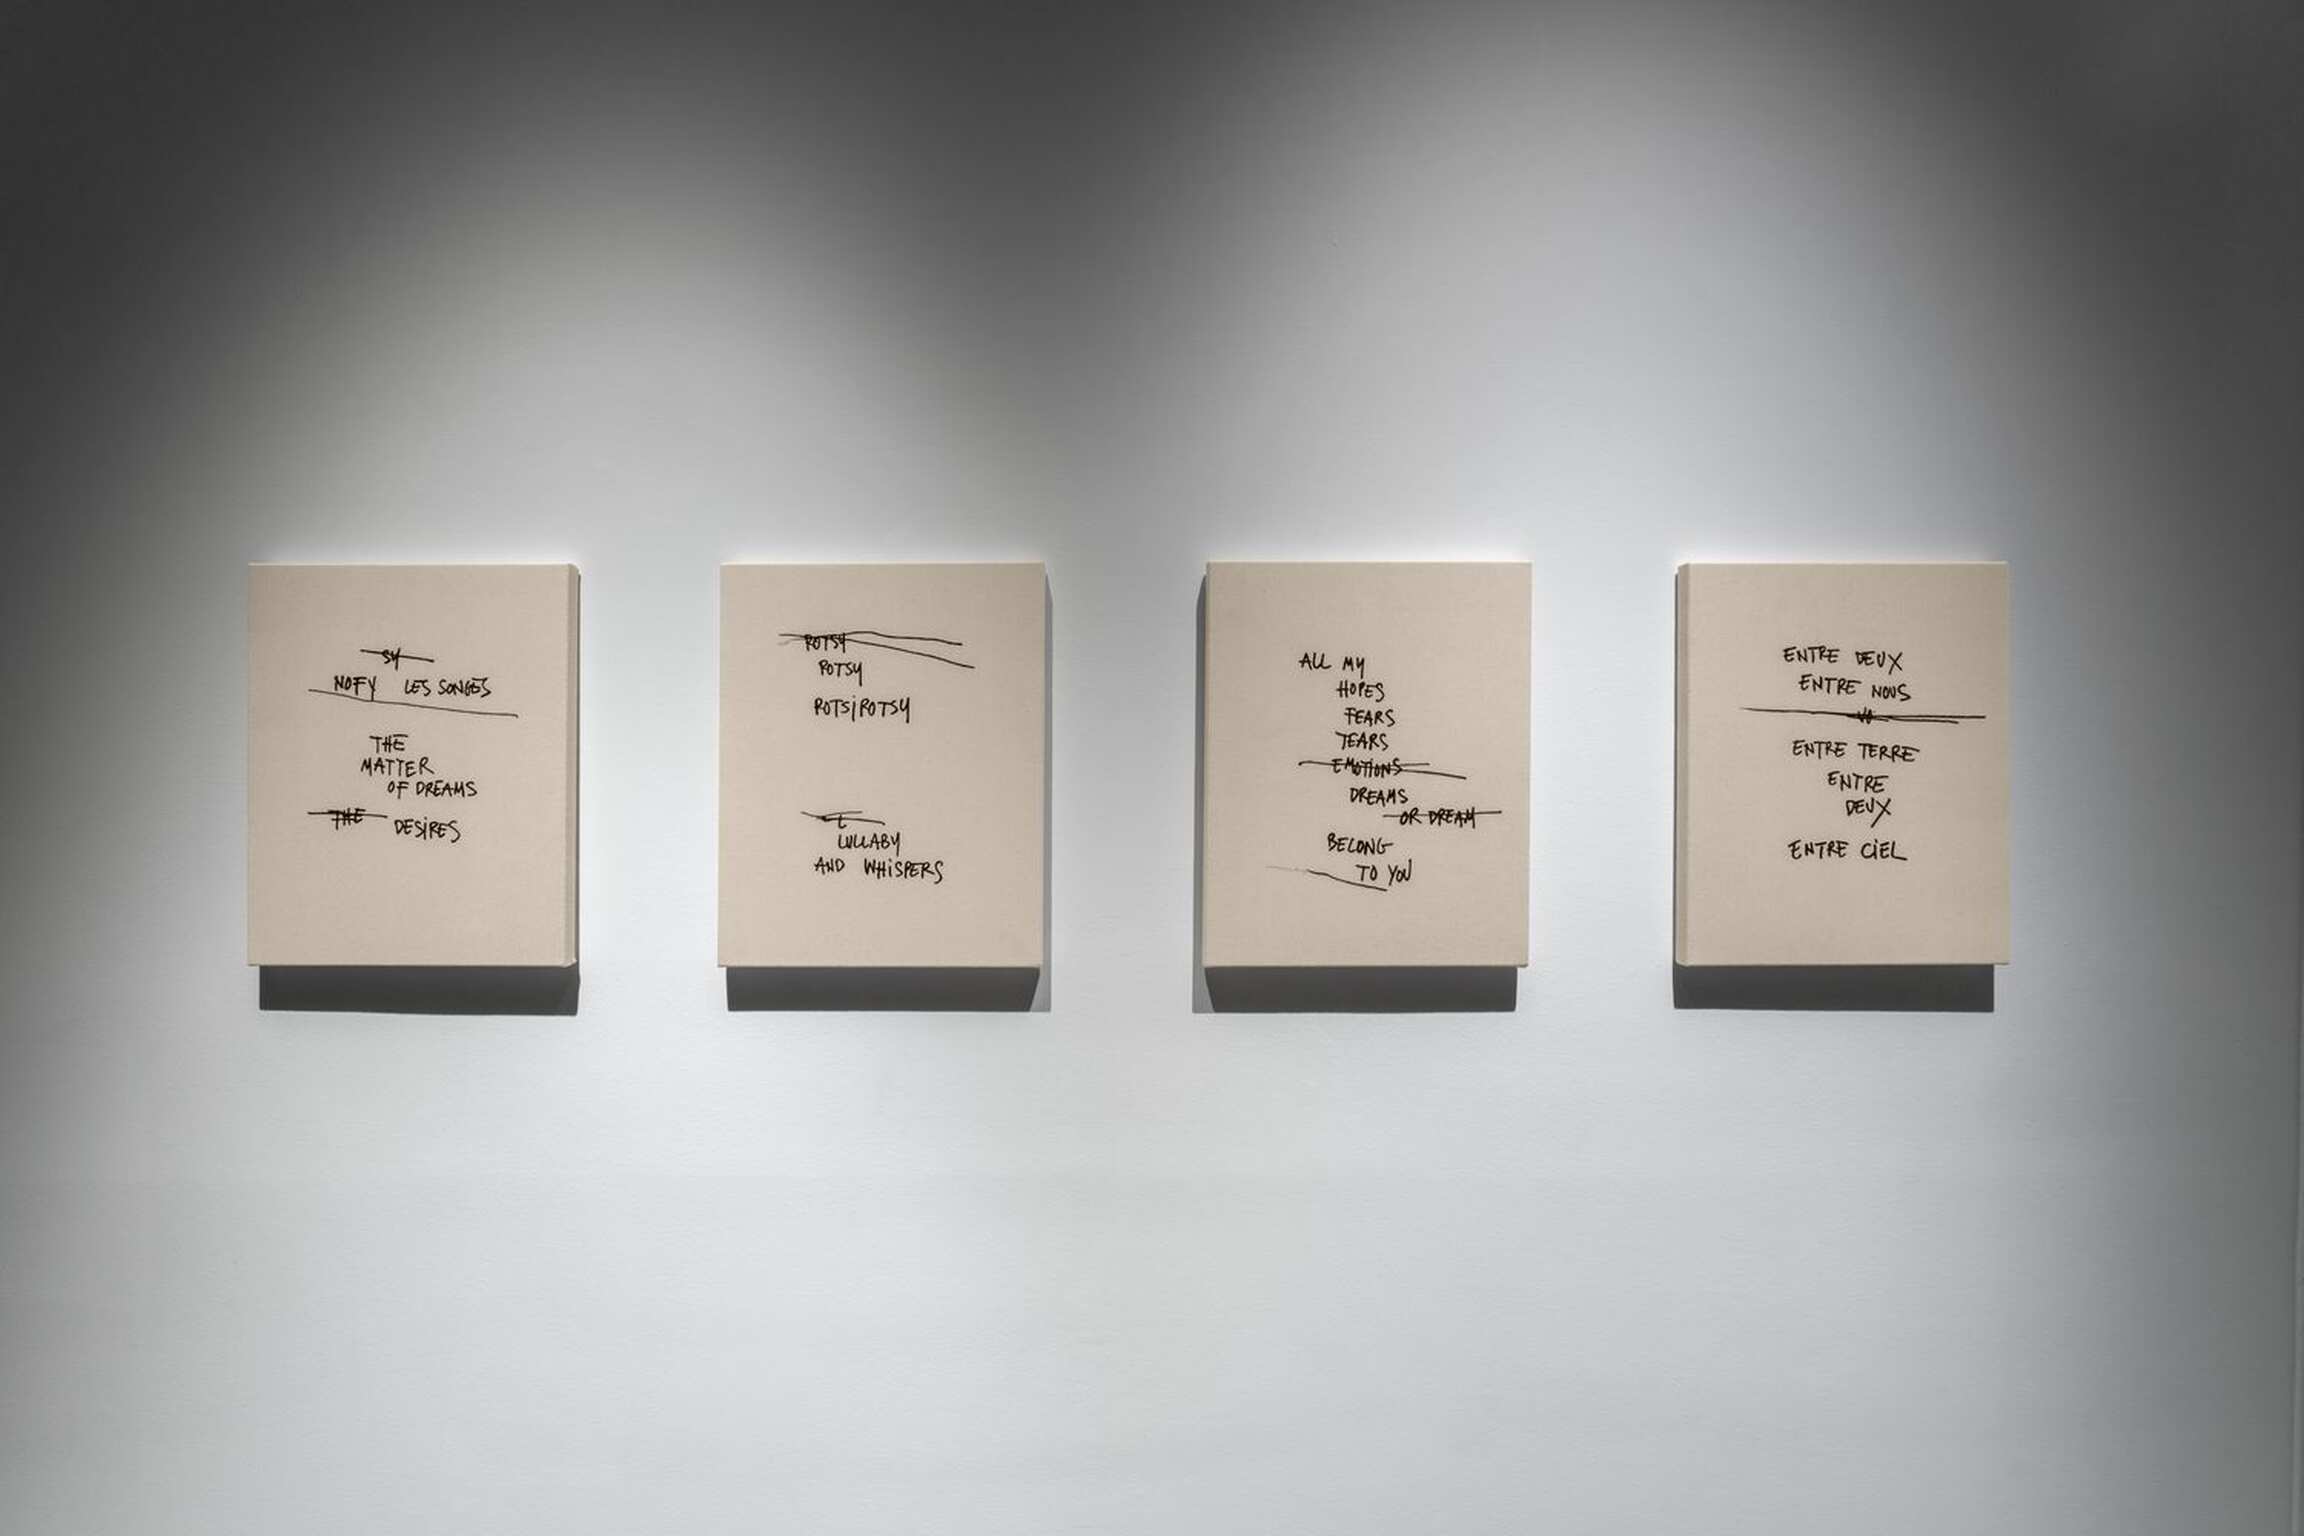 SY
NOFY LES SONGES
THE
MATTER
OF DREAMS
THE DESIRES
ROTSY
ROTSY
ROTSIROTSY
L
LULLABY
AND WHISPERS
ALL MY
HOPES
FEARS
TEARS
EMOTIONS
DREAMS
OR DREAM
BELONG
TO YOU
ENTRE DEUX
ENTRE NOUS
VO
ENTRE TERRE
ENTRE
DEUX
ENTRE CIEL